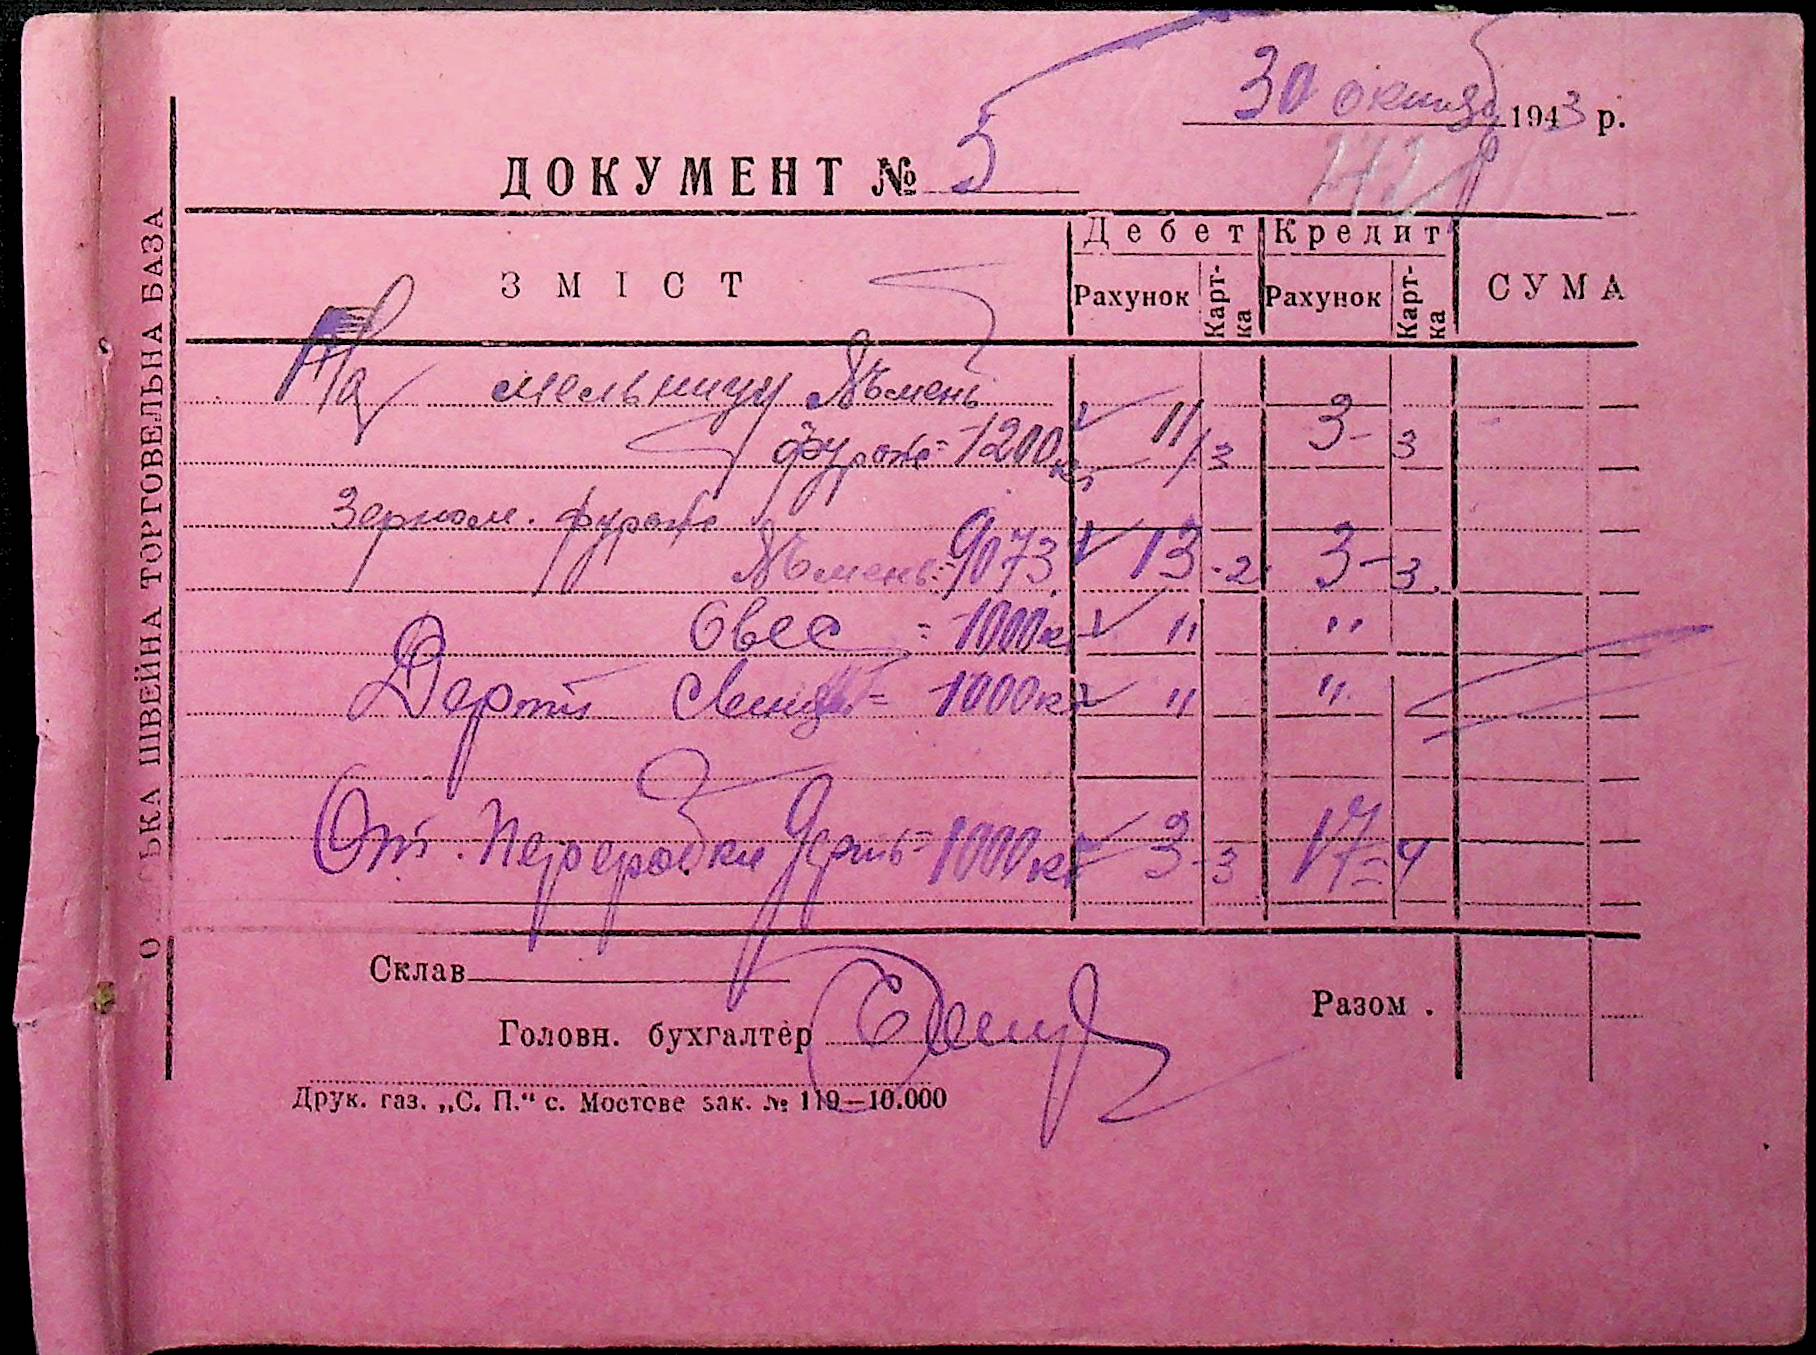 30 октяб 1943 р.
ДОКУМЕНТ № 5
272
Дебет Кредит
ЗМІСТ Рахунок Карт-ка Рахунок Карт-ка СУМА
На мельницу Ячмень
фураж = 1200 кг 11/3 3-3
Зернов. фураж
Ячмень = 9073 13-2 3-3
Овес = 1000 кг " "
Дерть = 1000 кг " "
От. переработки дерть = 1000 кг 3-3 17=4
Склав
Разом .
Головн. бухгалтер
Друк. газ. „С. П." с. Мостове зак. № 119—10.000
ЬКА ШВЕЙНА ТОРГОВЕЛЬНА БАЗА